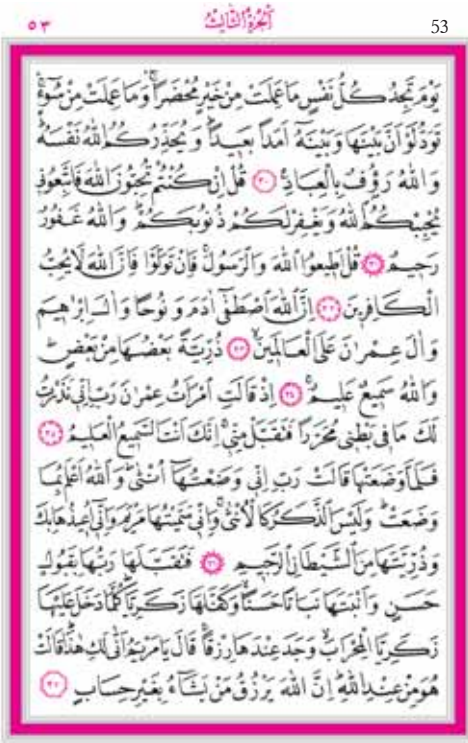 ٥٣ الجزء الثالث 53
يَوْمَ تَجِدُ كُلُّ نَفْسٍ مَا عَمِلَتْ مِنْ خَيْرٍ مُحْضَراً وَمَا عَمِلَتْ مِنْ سُوءٍ
تَوَدُّ لَوْ اَنَّ بَيْنَهَا وَبَيْنَهُٓ اَمَداً بَعِيداً وَيُحَذِّرُكُمُ اللّٰهُ نَفْسَهُ
وَاللّٰهُ رَؤُفٌ بِالْعِبَادِ ٣٠ قُلْ اِنْ كُنْتُمْ تُحِبُّونَ اللّٰهَ فَاتَّبِعُونِي
يُحْبِبْكُمُ اللّٰهُ وَيَغْفِرْ لَكُمْ ذُنُوبَكُمْ وَاللّٰهُ غَفُورٌ
رَحِيمٌ ٣١ قُلْ اَطِيعُوا اللّٰهَ وَالرَّسُولَ فَاِنْ تَوَلَّوْا فَاِنَّ اللّٰهَ لَا يُحِبُّ
الْكَافِرِينَ ٣٢ اِنَّ اللّٰهَ اصْطَفٰٓى اٰدَمَ وَنُوحًا وَاٰلَ اِبْرٰهِيمَ
وَاٰلَ عِمْرٰنَ عَلَى الْعَالَمِينَ ٣٣ ذُرِّيَّةً بَعْضُهَا مِنْ بَعْضٍ
وَاللّٰهُ سَمِيعٌ عَلِيمٌ ٣٤ اِذْ قَالَتِ امْرَاَتُ عِمْرٰنَ رَبِّ اِنِّي نَذَرْتُ
لَكَ مَا فِي بَطْنِي مُحَرَّراً فَتَقَبَّلْ مِنِّي اِنَّكَ اَنْتَ السَّمِيعُ الْعَلِيمُ ٣٥
فَلَمَّا وَضَعَتْهَا قَالَتْ رَبِّ اِنِّي وَضَعْتُهَٓا اُنْثٰى وَاللّٰهُ اَعْلَمُ بِمَا
وَضَعَتْ وَلَيْسَ الذَّكَرُ كَالْاُنْثٰى وَاِنِّي سَمَّيْتُهَا مَرْيَمَ وَاِنِّٓي اُعِيذُهَا بِكَ
وَذُرِّيَّتَهَا مِنَ الشَّيْطَانِ الرَّجِيمِ ٣٦ فَتَقَبَّلَهَا رَبُّهَا بِقَبُولٍ
حَسَنٍ وَاَنْبَتَهَا نَبَاتاً حَسَناً وَكَفَّلَهَا زَكَرِيَّا كُلَّمَا دَخَلَ عَلَيْهَا
زَكَرِيَّا الْمِحْرَابَ وَجَدَ عِنْدَهَا رِزْقاً قَالَ يَا مَرْيَمُ اَنّٰى لَكِ هٰذَا قَالَتْ
هُوَ مِنْ عِنْدِ اللّٰهِ اِنَّ اللّٰهَ يَرْزُقُ مَنْ يَشَٓاءُ بِغَيْرِ حِسَابٍ ٣٧